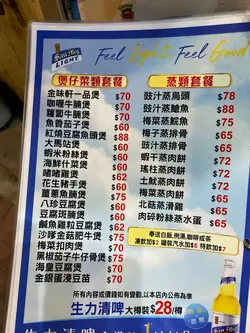 San Mig
LIGHT
Feel Light Feel Good
煲仔菜類套餐
金味軒一品煲 $70
咖喱牛腩煲 $70
蘿蔔牛腩煲 $70
魚香茄子煲 $60
紅燒豆腐魚頭煲 $88
大馬站煲 $60
蝦米粉絲煲 $60
海鮮什菜煲 $60
啫啫雞煲 $62
花生豬手煲 $60
薑蔥魚腩煲 $75
八珍豆腐煲 $60
豆腐斑腩煲 $60
鹹魚雞粒豆腐煲 $60
沙嗲金菇肥牛煲 $75
梅菜扣肉煲 $70
黑椒茄子牛仔骨煲 $75
海皇豆腐煲 $70
金銀蛋浸豆苗 $70
蒸類套餐
豉汁蒸烏頭 $78
豉汁蒸鯇魚 $88
梅菜蒸鯇魚 $75
梅子蒸排骨 $65
豉汁蒸排骨 $65
蝦干蒸肉餅 $65
瑤柱蒸肉餅 $65
土魷蒸肉餅 $65
梅菜蒸肉餅 $65
北菇蒸滑雞 $65
肉碎粉絲蒸水蛋 $65
奉送白飯,例湯,咖啡或茶
凍飲加$3 罐裝汽水加$5 特飲加$7
所有內容或價錢如有變動,以本店內公佈為準
生力清啤 大樽裝 $28/樽